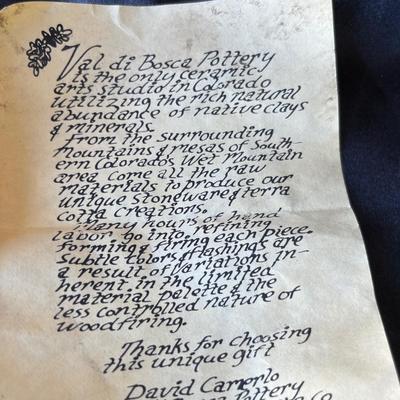 Val di Bosca Pottery
is the only ceramic
arts studio in Colorado
utilizing the rich natural
abundance of native clays
& minerals.
From the surrounding
mountains & mesas of South-
ern Colorado's Wet Mountain
area come all the raw
materials to produce our
unique stoneware & terra
cotta creations.
Many hours of hand
labor go into refining
forming & firing each piece.
Subtle colors & flashings are
a result of variations in-
herent in the limited
material palette & the
less controlled nature of
woodfiring.
Thanks for choosing
this unique gift
David Camerlo
Pottery